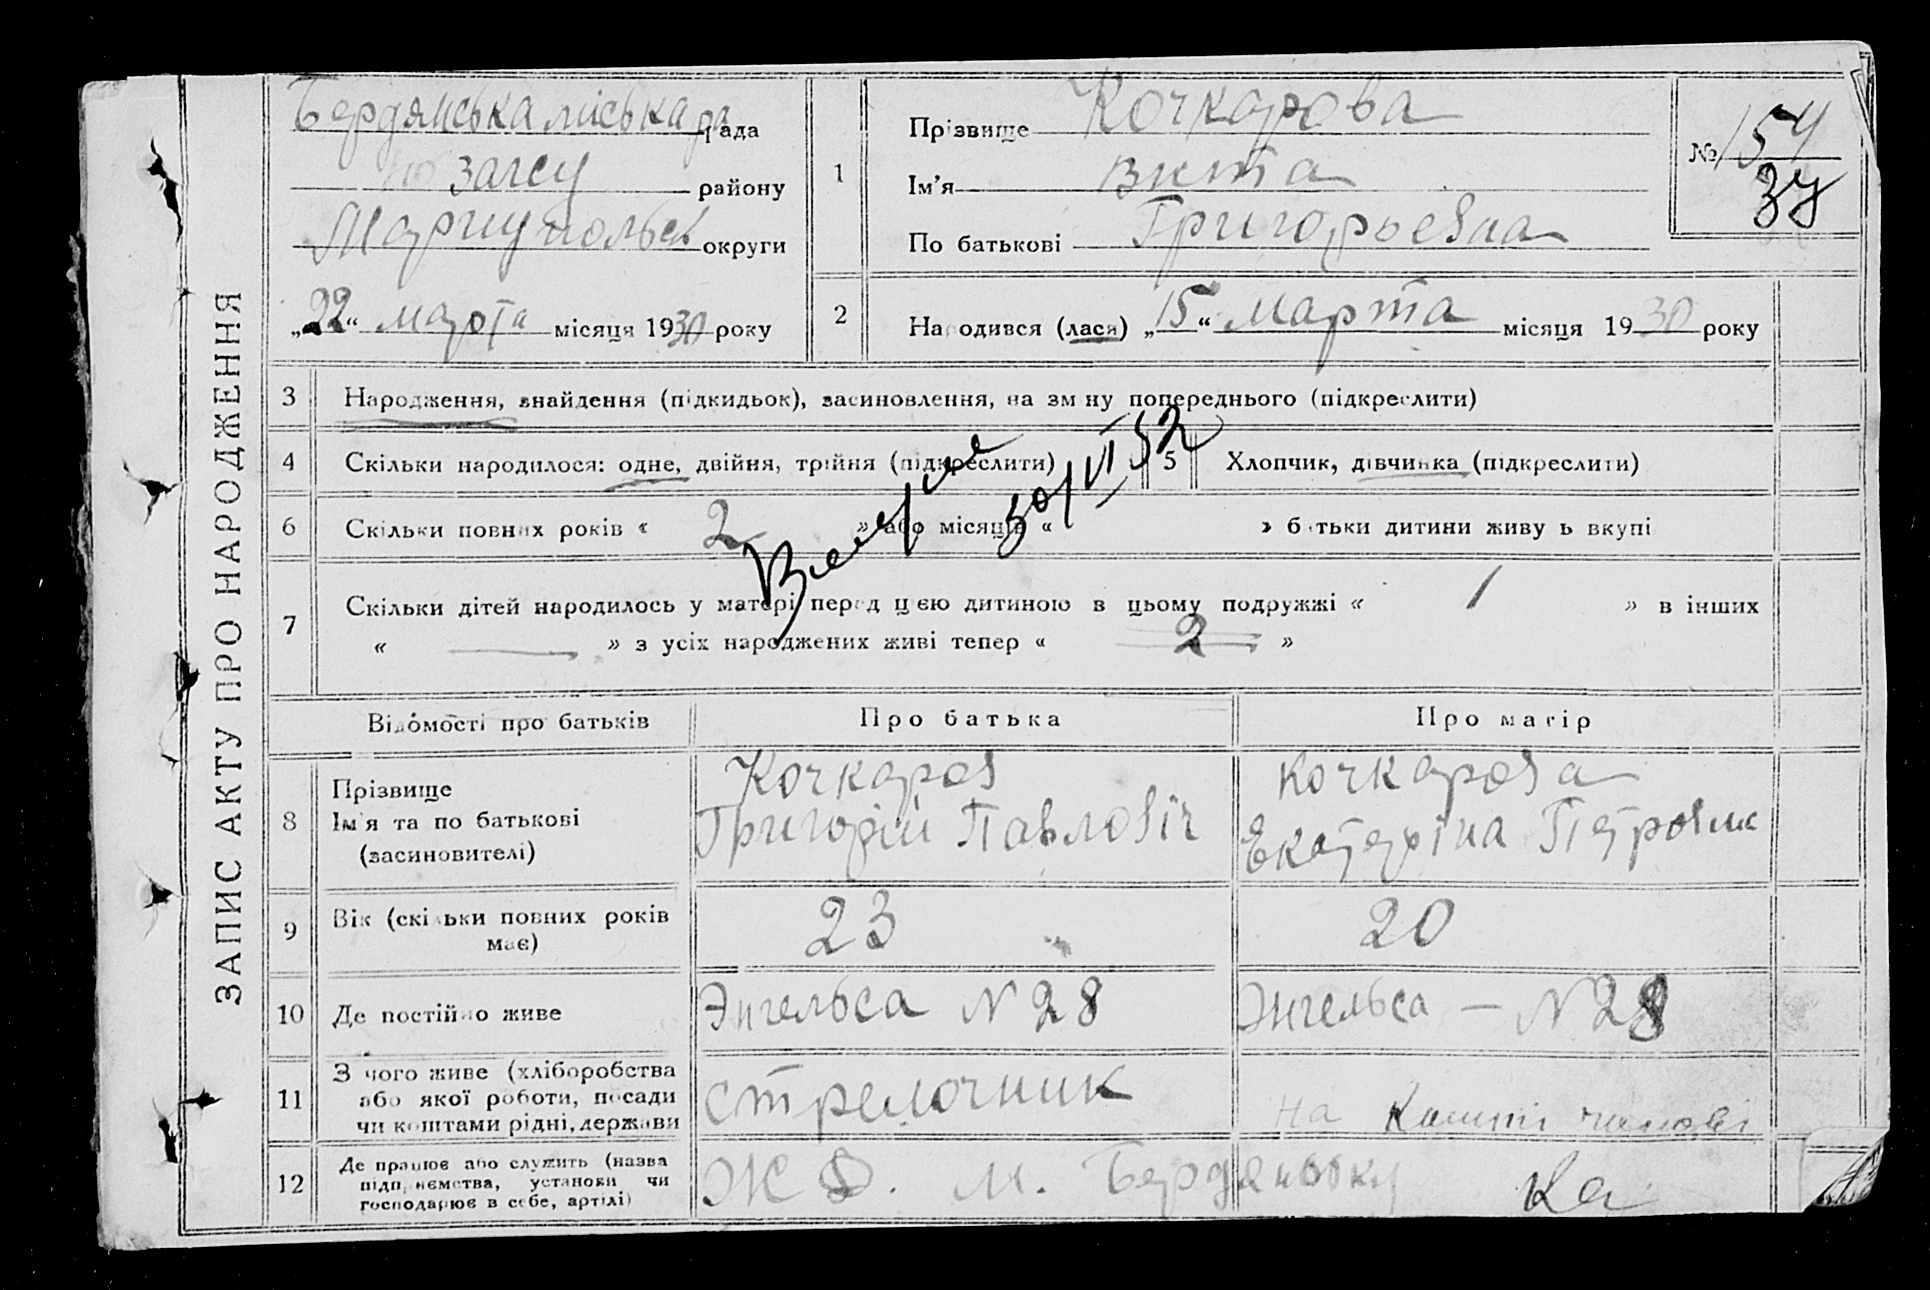 ЗАПИС АКТУ ПРО НАРОДЖЕННЯ
Бердянська міська рада
загсу району
Мариупольск округи
„22“ марта місяця 1930 року
1
Прізвище Кочкарова
Ім'я Вита
По батькові Григорьевна
№ 154
34
2
Народився (лася) „15“ марта місяця 1930 року
3 Народження, знайдення (підкидьок), засиновлення, на зміну попереднього (підкреслити)
4 Скільки народилося: одне, двійня, трійня (підкреслити)
5 Хлопчик, дівчинка (підкреслити)
30/VI 52
6 Скільки повних років « 2 » або місяців « » батьки дитини живуть вкупі
7 Скільки дітей народилось у матері перед цією дитиною в цьому подружжі « 1 » в інших
« — » з усіх народжених живі тепер « 2 »
Відомості про батьків Про батька Про матір
8 Прізвище
Ім'я та по батькові
(засиновителі)
Кочкаров
Григорій Павловіч
Кочкарова
Екатеріна Петровна
9 Вік (скільки повних років
має)
23
20
10 Де постійно живе
Энгельса N 28
Энгельса — N 28
11 З чого живе (хліборобства
або якої роботи, посади
чи коштами рідні, держави
стрелочник
на кошті чилові
12 Де працює або служить (назва
підприємства, установи чи
господарює в себе, артілі)
ЖД. м. Бердянську